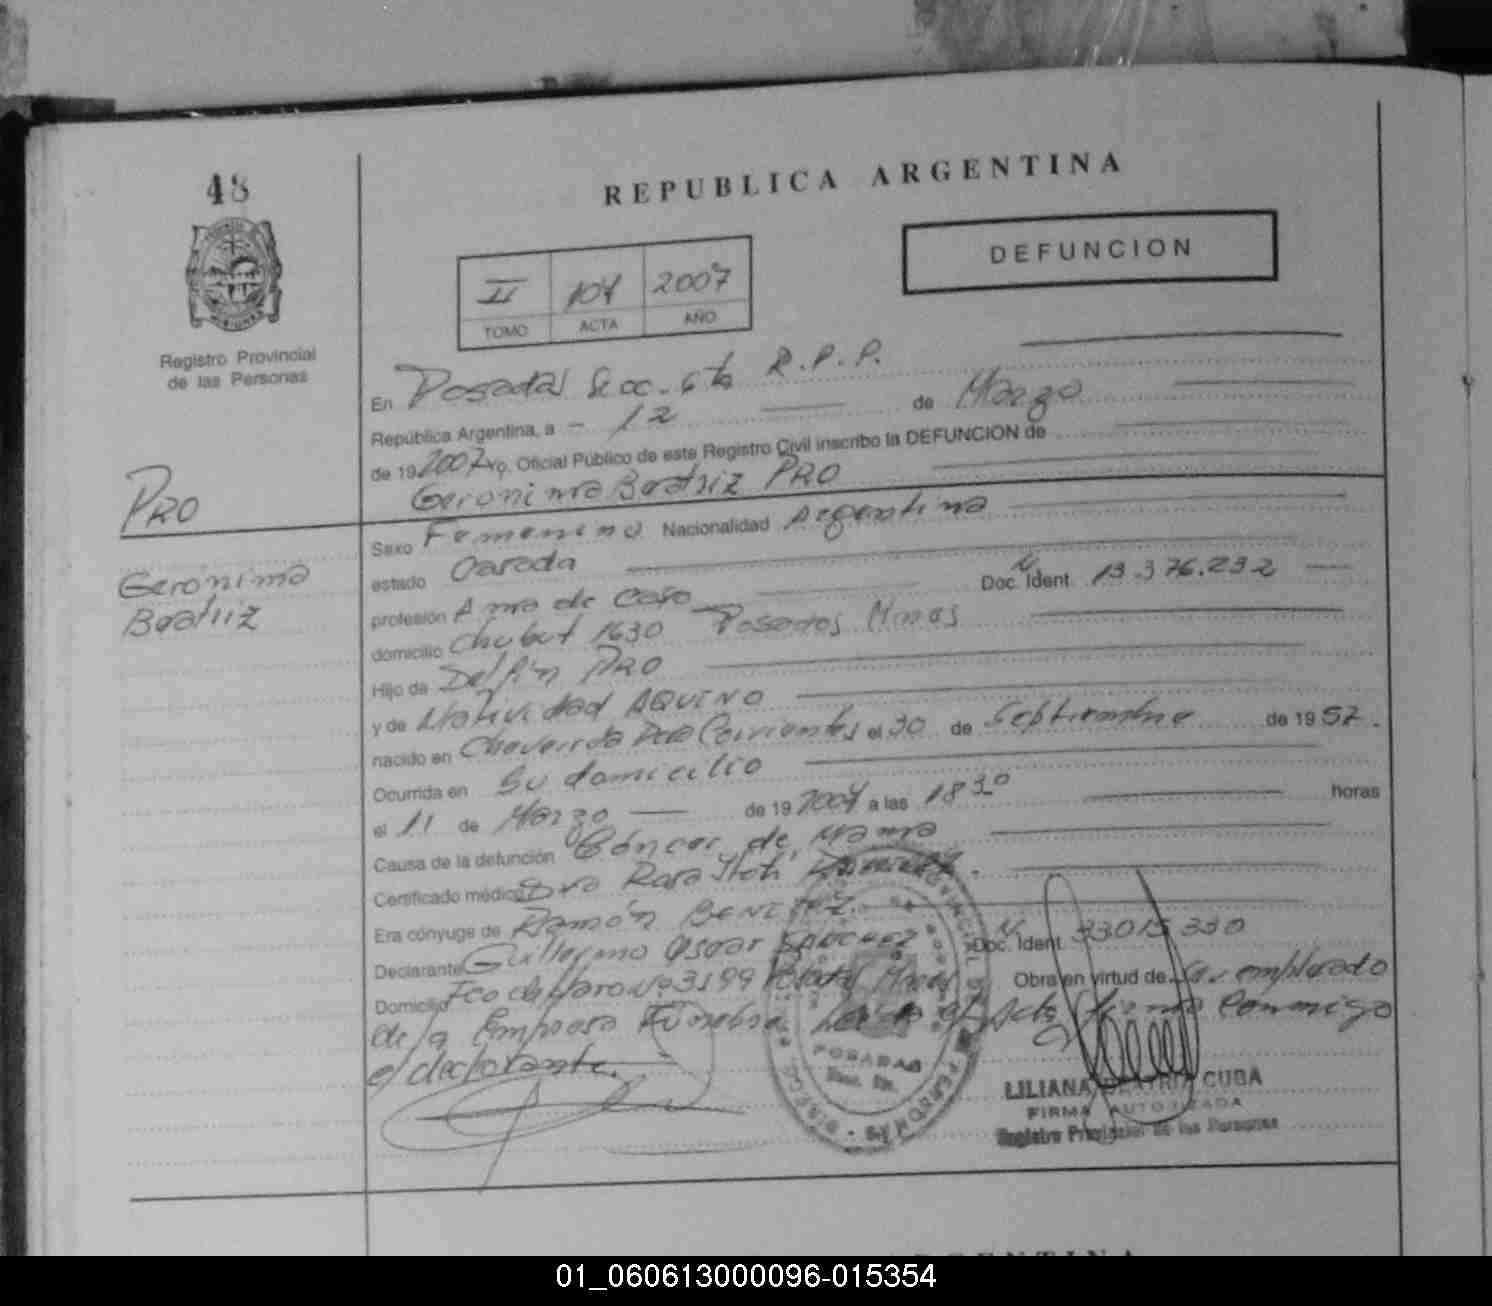 48
REPUBLICA ARGENTINA
DEFUNCION
II 104 2007
TOMO ACTA AÑO
MISIONES
Registro Provincial
de las Personas
En Posadas Secc. 6ta R.P.P.
República Argentina, a - 12 de Marzo
de 19 2007 yo, Oficial Público de este Registro Civil inscribo la DEFUNCION de
Geronima Beatriz PRO
PRO
Gerónima
Beatriz
Sexo Femenino Nacionalidad Argentina
estado Casada
profesión Ama de Casa Doc. Ident. N 13.376.232
domicilio Chubut 1630 Posadas Mnes
Hijo de Delfín PRO
y de Natividad AQUINO
nacido en Corrientes el 30 de Septiembre de 19 57.
Ocurrida en Su domicilio
el 11 de Marzo de 19 2007 a las 18 30 horas
Causa de la defunción Cáncer de Mama
Certificado médico Dra Rosa
Era cónyuge de Ramón BENITEZ
Declarante Guillermo Oscar SANCHEZ Doc. Ident. N 33015330
Domicilio Fco de Haro Nº 3199 Posadas Mnes Obra en virtud de Ser empleado
de la Empresa Fúnebre el Acta firma Conmigo
el declarante.
POSADAS
LILIANA BEATRIZ CUBA
FIRMA AUTORIZADA
Registro Provincial de las Personas
ARGENTINA
01_060613000096-015354